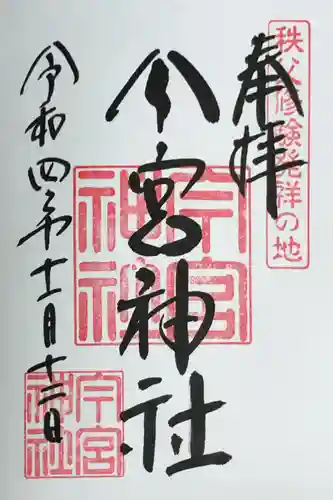 秩父修験発祥の地
奉拝
今宮神社
今宮神社
令和四年十一月十三日
今宮神社